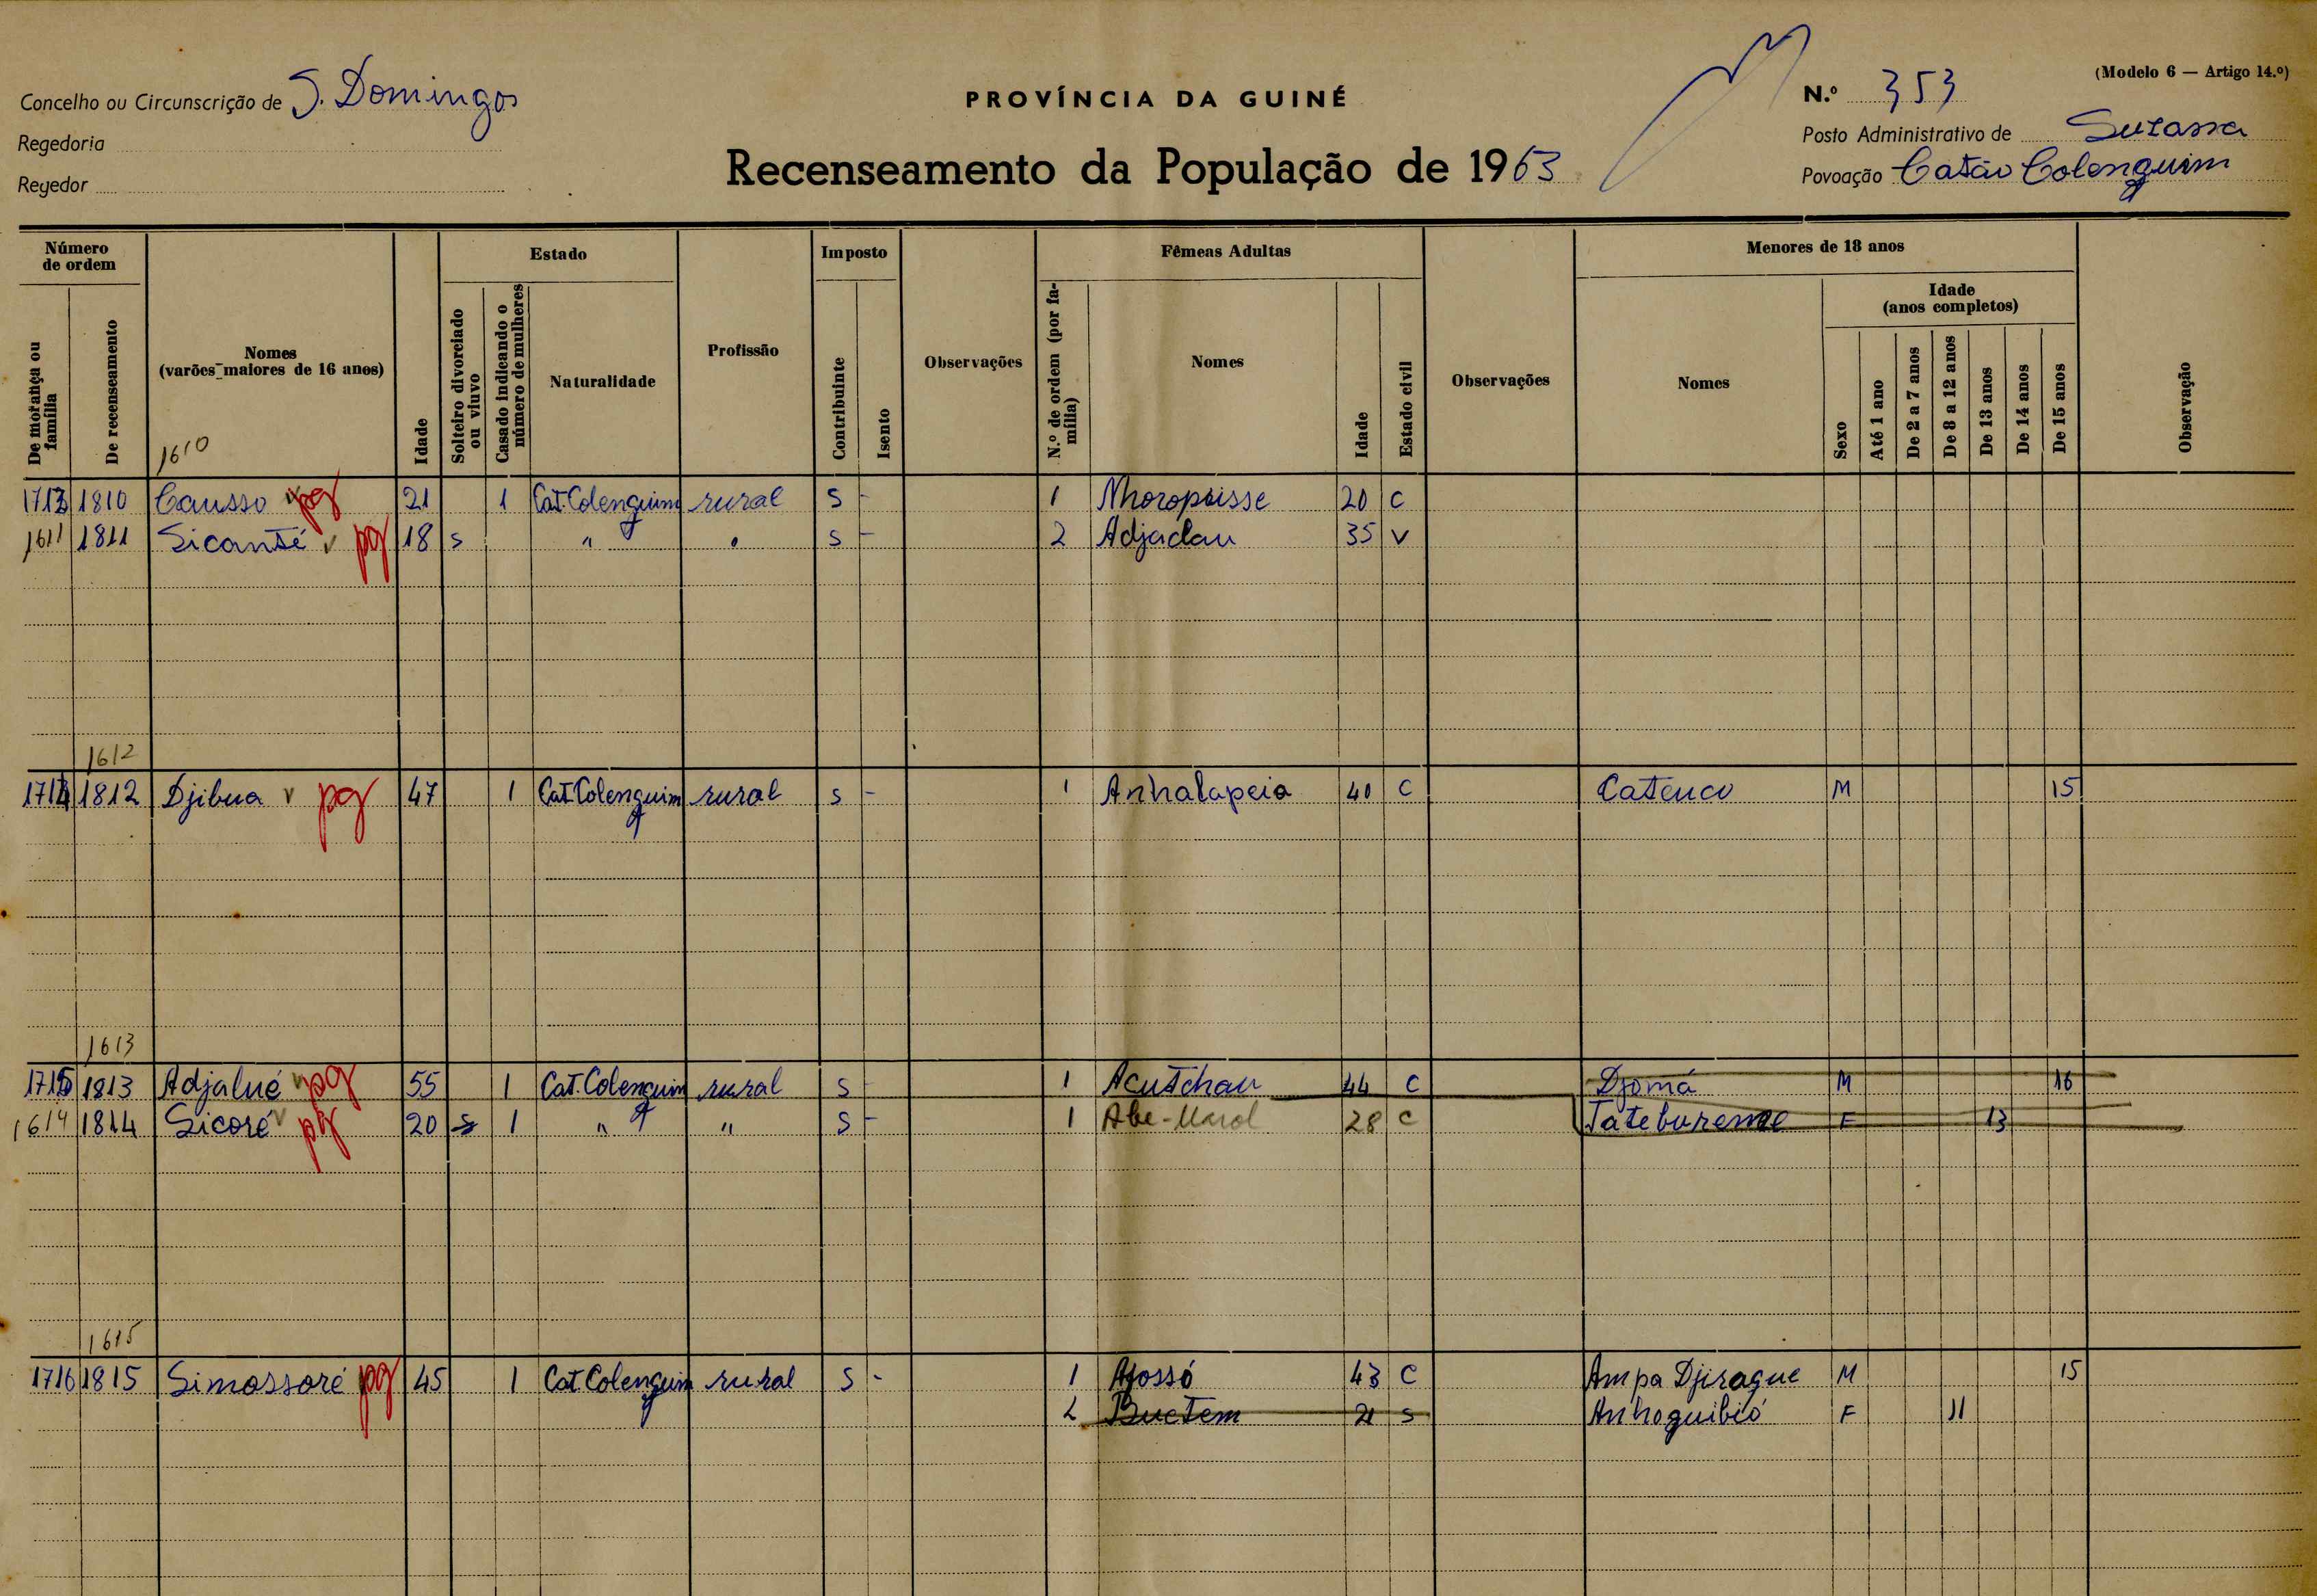 (Modelo 6 — Artigo 14.º)
Concelho ou Circunscrição de S. Domingos
PROVÍNCIA DA GUINÉ
N.º 353
Regedoria
Posto Administrativo de Suzassa
Regedor
Recenseamento da População de 1963
Povoação Catão Colenguim
Número de ordem
Estado
Imposto
Fêmeas Adultas
Menores de 18 anos
De morança ou família
De recenseamento
Nomes (varões maiores de 16 anos)
Idade
Solteiro divorciado ou viuvo
Casado indicando o número de mulheres
Naturalidade
Profissão
Contribuinte
Isento
Observações
N.º de ordem (por família)
Nomes
Idade
Estado civil
Observações
Nomes
Sexo
Idade (anos completos)
Até 1 ano
De 2 a 7 anos
De 8 a 12 anos
De 13 anos
De 14 anos
De 15 anos
Observação
1610
1713 1810 Causso v pg 21 1 Cat. Colenguim rural S - 1 Nhoropoisse 20 C
1611 1811 Sicanté v pg 18 s " " S - 2 Adjadau 35 V
1612
1714 1812 Djibua v pg 47 1 Cat. Colenguim rural S - 1 Anhalapeia 40 C Catenco M 15
1613
1715 1813 Adjalué v pg 55 1 Cat. Colenguim rural S - 1 Acutchau 44 C Djomá M 16
1614 1814 Sicoré v pg 20 s 1 " " S - 1 Abe-Marol 28 C Tatebureme F 13
1615
1716 1815 Simossoré pg 45 1 Cat Colenguim rural S - 1 Afossó 43 C Ampa Djirague M 15
2 Buctem 21 s Anhoguibió F 11